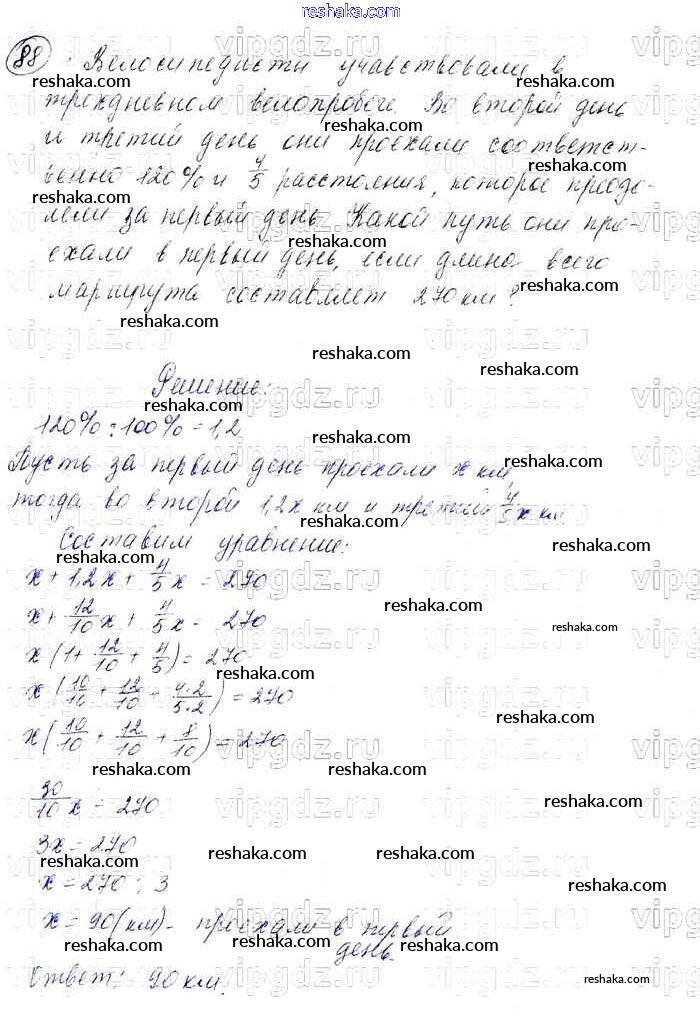 reshaka.com
88. Велосипедисты учавствовали в
трехдневном велопробеге. Во второй день
и третий день они проехали соответст-
венно 120% и 4/5 расстояния, которое преодо-
лели за первый день. Какой путь они про-
ехали в первый день, если длина всего
маршрута составляет 270 км?
Решение:
120% : 100% = 1,2
Пусть за первый день проехали x км,
тогда во второй 1,2x км и третий 4/5 x км
Составим уравнение:
x + 1,2x + 4/5 x = 270
x + 12/10 x + 4/5 x = 270
x (1 + 12/10 + 4/5) = 270
x (10/10 + 12/10 + 4·2/5·2) = 270
x (10/10 + 12/10 + 8/10) = 270
30/10 x = 270
3x = 270
x = 270 : 3
x = 90 (км) - проехали в первый
день.
Ответ: 90 км.